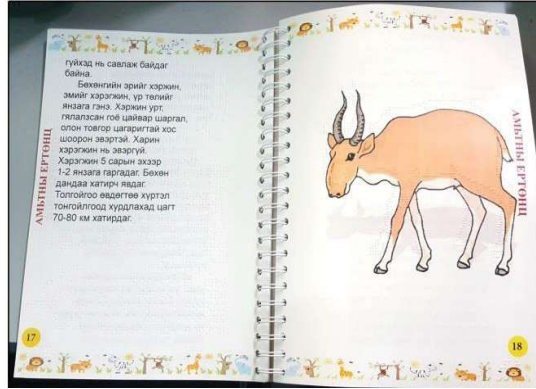 гүйхэд нь савлаж байдаг
байна.
Бөхөнгийн эрийг хэржин,
эмийг хэрэгжин, үр төлийг
янзага гэнэ. Хэржин урт,
гялалзсан гоё цайвар шаргал,
олон товгор цагаригтай хос
шоорон эвэртэй. Харин
хэрэгжин нь эвэргүй.
Хэрэгжин 5 сарын эхээр
1-2 янзага гаргадаг. Бөхөн
дандаа хатирч явдаг.
Толгойгоо өвдөгтөө хүртэл
тонгойлгоод хурдлахад цагт
70-80 км хатирдаг.
АМЬТНЫ ЕРТӨНЦ
17
АМЬТНЫ ЕРТӨНЦ
18